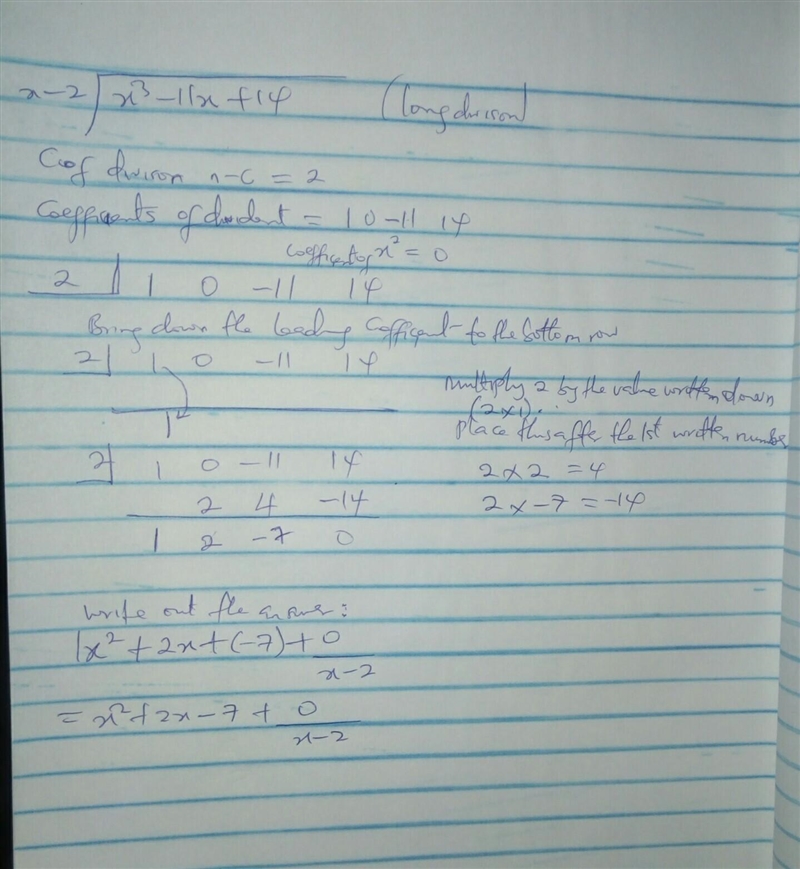 x-2 x³-11x+14 (long division)
Coef division x-c = 2
Coefficients of divident = 1 0 -11 14
coefficient of x² = 0
2 1 0 -11 14
Bring down the leading coefficient to the bottom row
2 1 0 -11 14
1
multiply 2 by the value written down
(2x1).
place this after the 1st written number
2 1 0 -11 14
2 4 -14
1 2 -7 0
2x2 = 4
2x-7 = -14
write out the answer:
1x²+2x+(-7)+0
x-2
= x²+2x-7+0
x-2